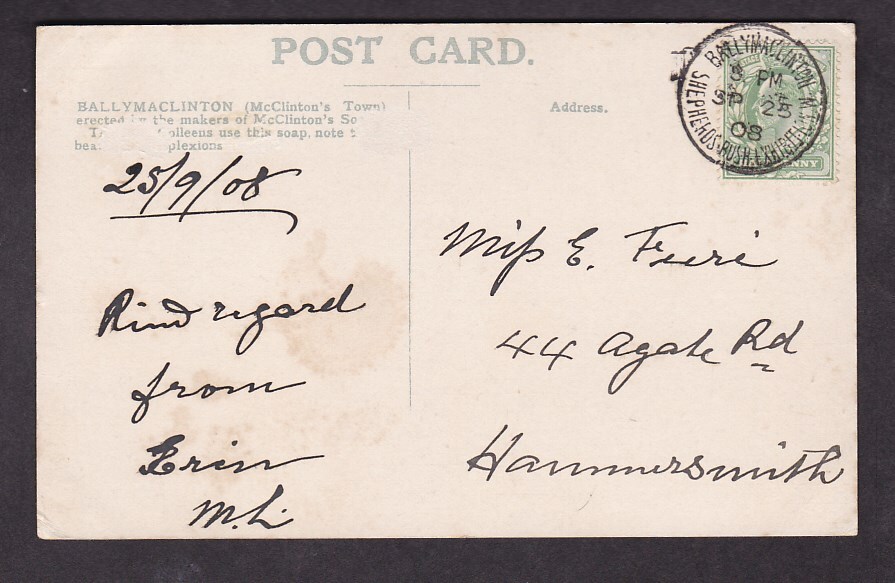 POST CARD.
BALLYMACLINTON (McClinton's Town)
erected by the makers of McClinton's
olleens use this soap, note
plexions
Address.
BALLYMACLINTON
PM
SP 25
08
SHEPHERDS BUSH
NNY
25/9/08
Kind regard
from
Erin
M.L.
Miss E.
44 Agate Rd
Hammersmith